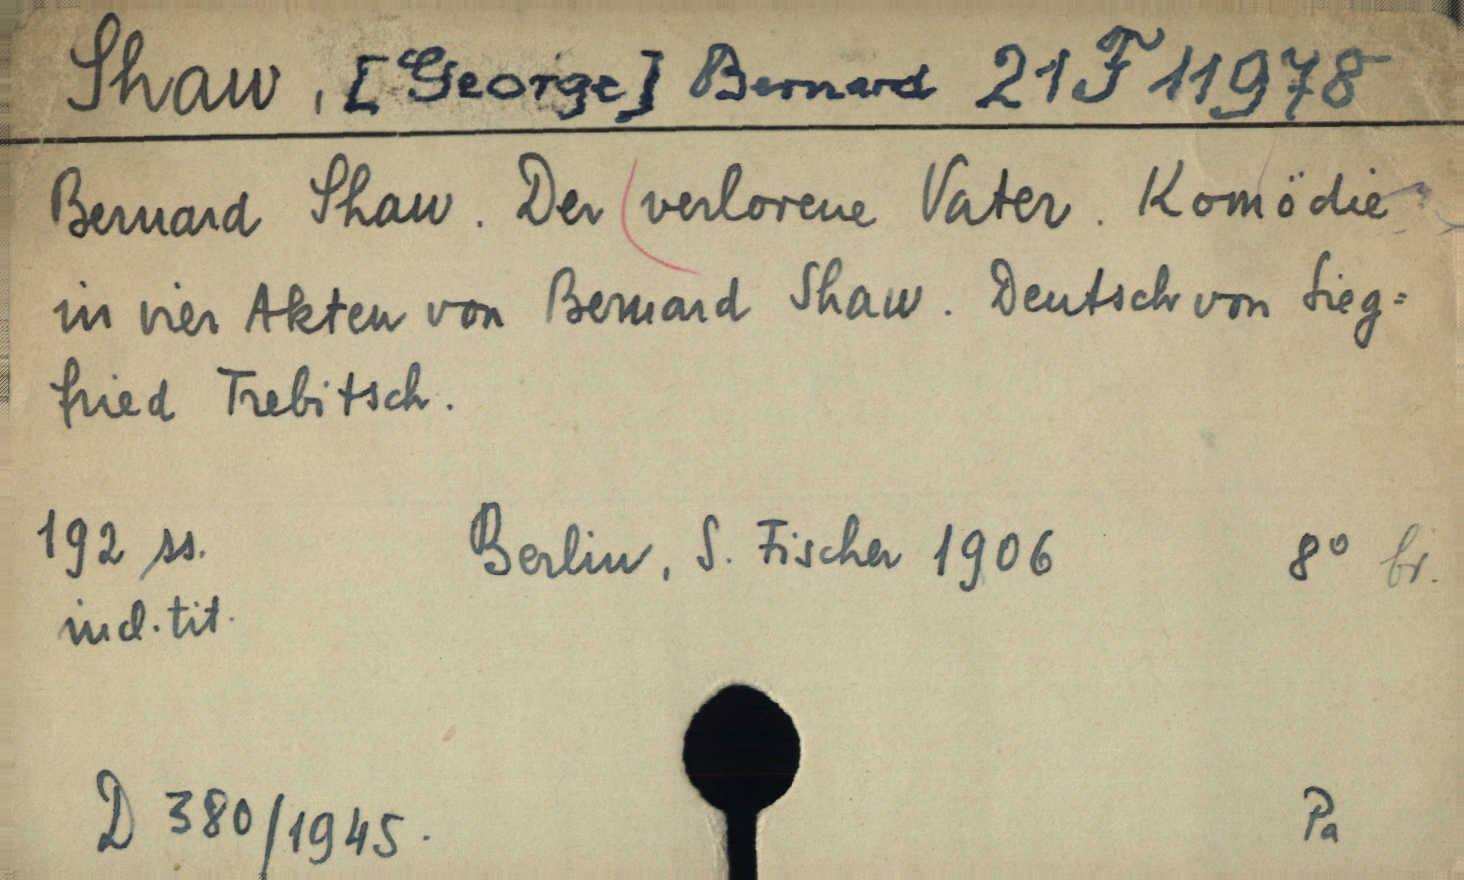 Shaw, [George] Bernard 21 F 11978
Bernard Shaw. Der verlorene Vater. Komödie
in vier Akten von Bernard Shaw. Deutsch von Sieg=
fried Trebitsch.
192 ss. Berlin, S. Fischer 1906 8° br.
incl. tit.
D 380/1945. Pa